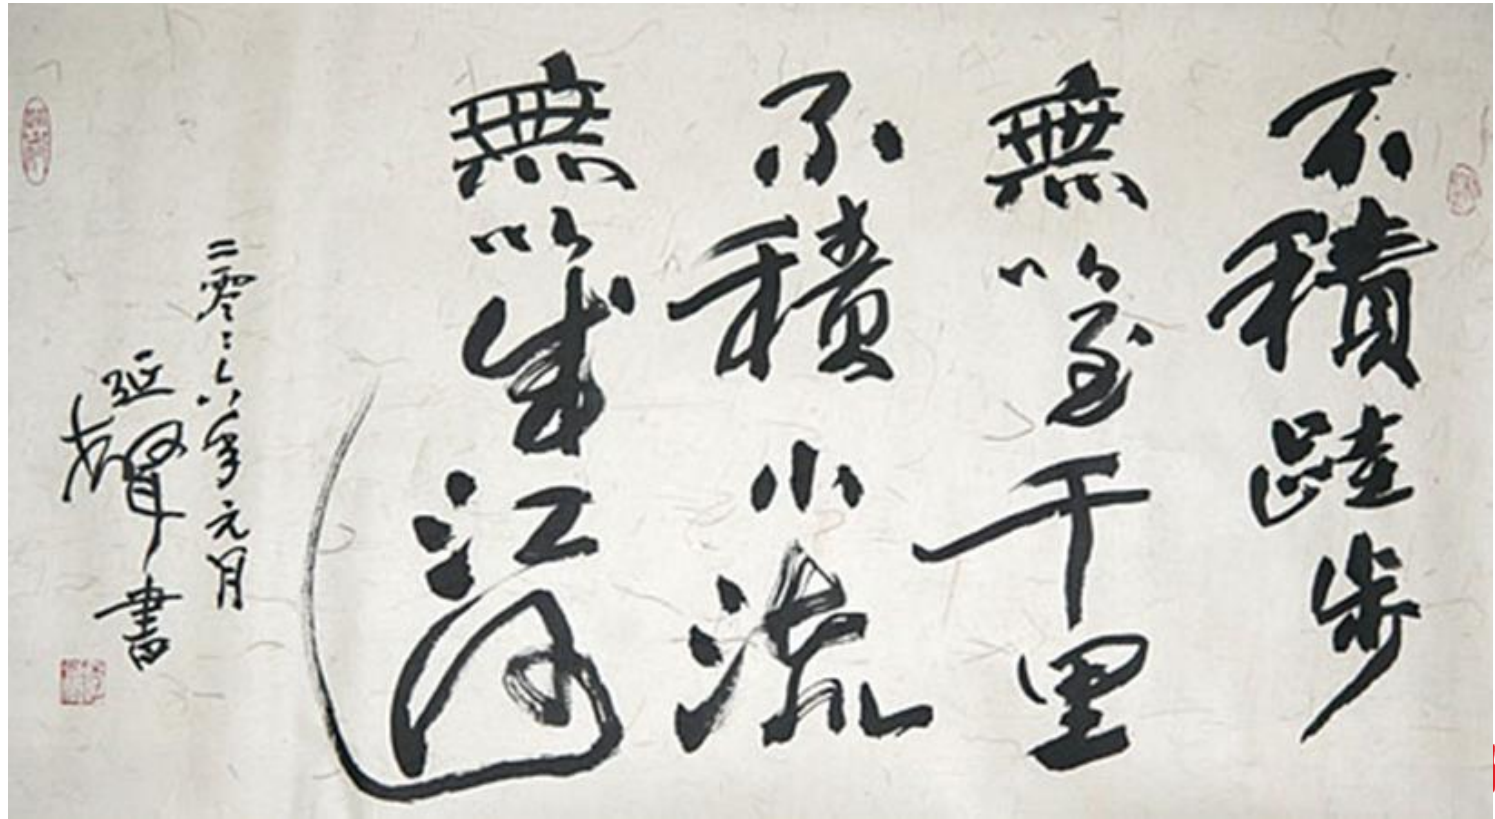 不積跬步
無以至千里
不積小流
無以成江河
二零年元月
延聲書